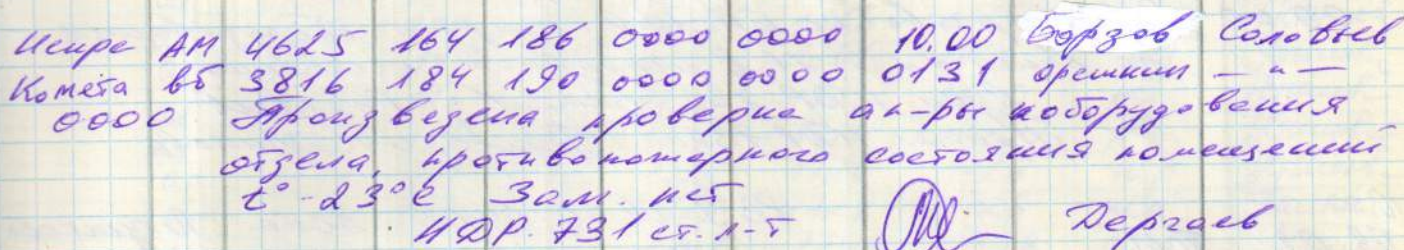 Искра АМ 4625 164 186 0000 0000 10.00 Борзов Соловьев
Комета вб 3816 184 190 0000 0000 0131 орешкин — " —
0000 Произведена проверка ап-ры и оборудования
отдела, противопожарного состояния помещений
t° - 23°C Зам. нет
НДР. 731 ст. л-т Дергаев